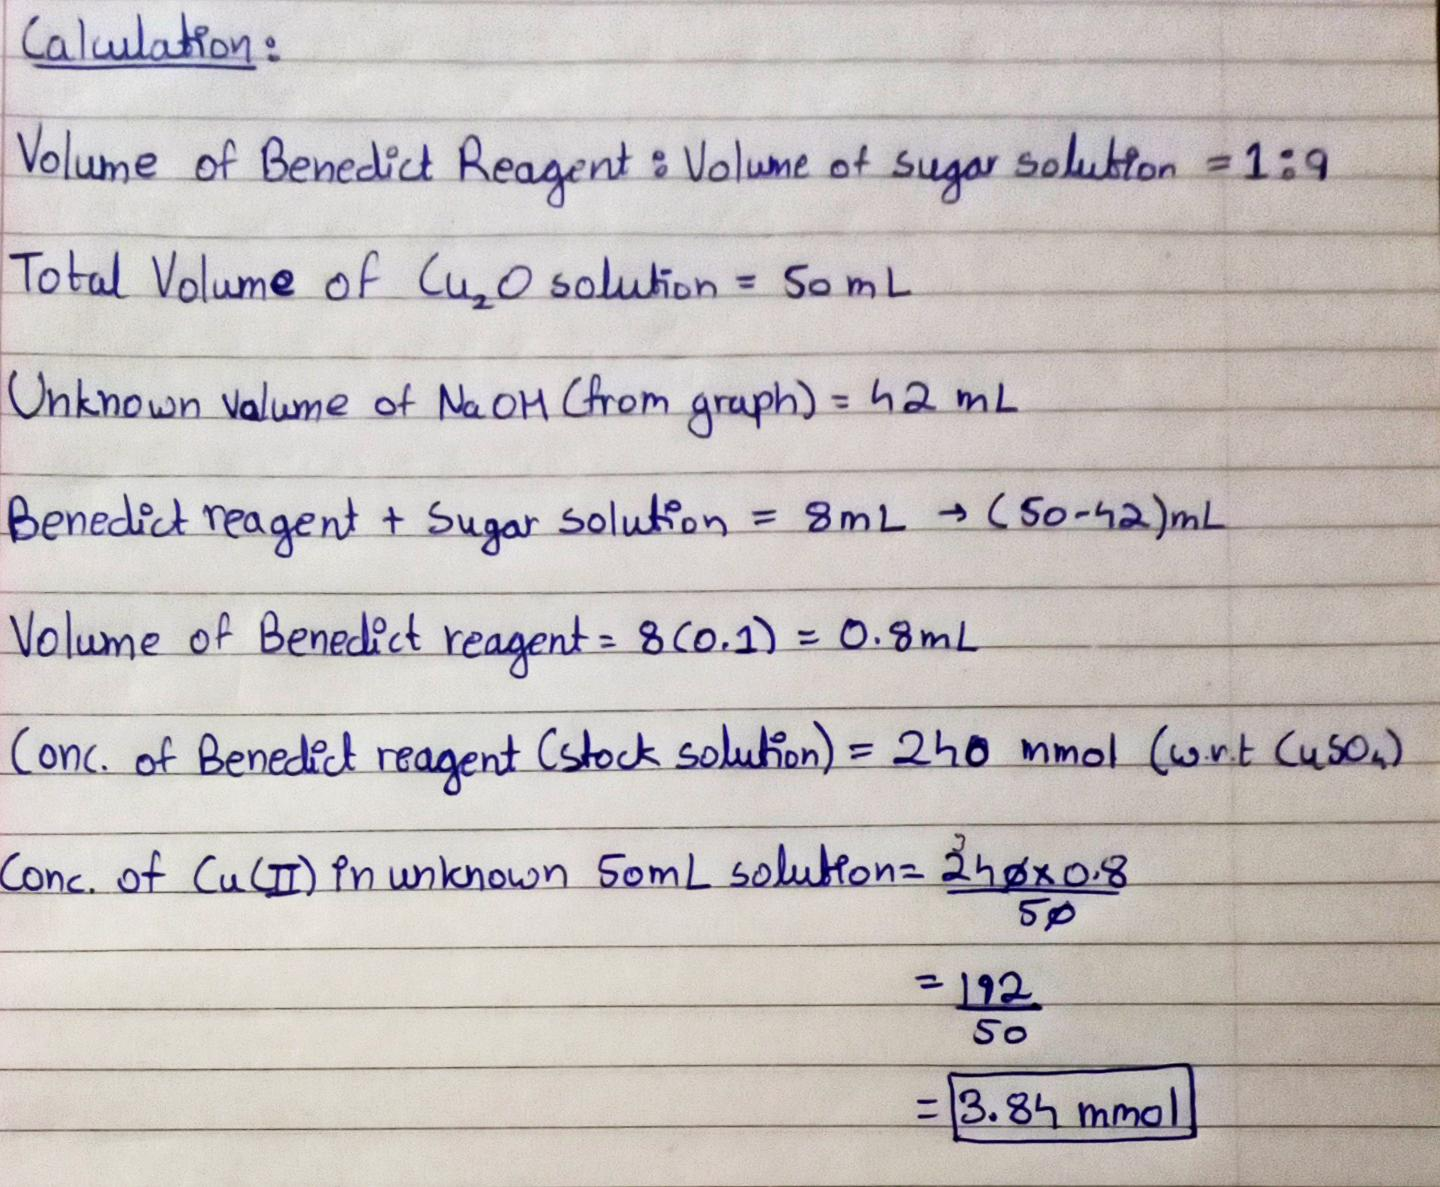 Calculation:
Volume of Benedict Reagent : Volume of sugar solution = 1:9
Total Volume of Cu₂O solution = 50 mL
Unknown volume of NaOH (from graph) = 42 mL
Benedict reagent + Sugar solution = 8mL → (50-42)mL
Volume of Benedict reagent = 8(0.1) = 0.8mL
Conc. of Benedict reagent (stock solution) = 240 mmol (w.r.t CuSO₄)
Conc. of Cu(II) in unknown 50mL solution = 240×0.8
50
= 192
50
= 3.84 mmol